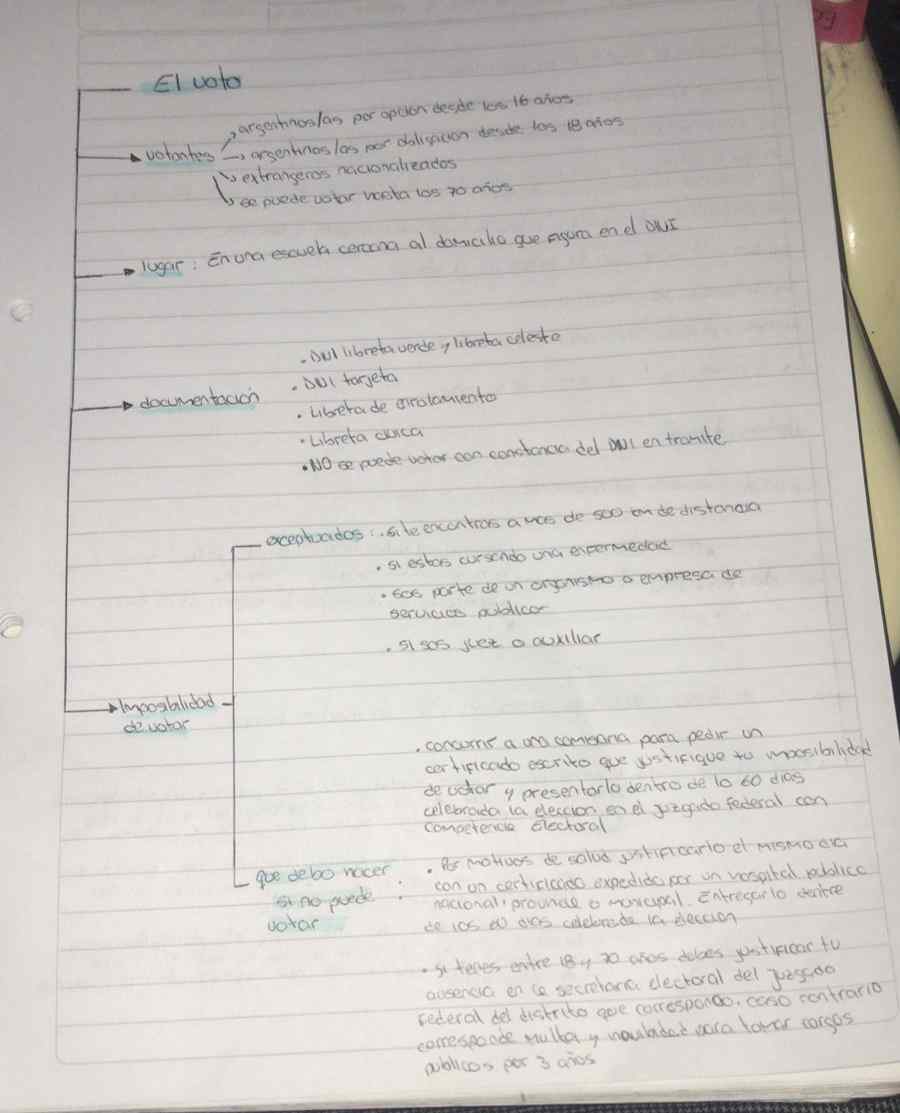 El voto
votantes
argentinos/as por opcion desde los 16 años
argentinos/as por obligacion desde los 18 años
extrangeros nacionalizados
se puede votar hasta los 70 años
lugar: En una escuela cercana al domicilio que figura en el DNI
documentación
. DNI libreta verde y libreta celeste
. DNI tarjeta
. Libreta de enrolamiento
. Libreta civica
. NO se puede votar con constancia del DNI en tramite
Imposibilidad
de votar
exceptuados: . si te encontras a mas de 500 km de distancia
. si estas cursando una enfermedad
. sos parte de un organismo o empresa de
servicios publicos
. si sos juez o auxiliar
que debo hacer
si no puede
votar
. concurrir a una comisaria para pedir un
certificado escrito que justifique tu imposibilidad
de votar y presentarlo dentro de lo 60 dias
celebrada la eleccion en el juzgado federal con
competencia Electoral
. Por motivos de salud justificarlo el mismo dia
con un certificado expedido por un hospital publico
nacional, provincial o municipal. Entregarlo dentro
de los 60 dias celebrada la eleccion
. si tenes entre 18 y 70 años debes justificar tu
ausencia en la secretaria electoral del juzgado
federal del distrito que corresponda, caso contrario
corresponde multa y para tomar cargos
publicos por 3 años